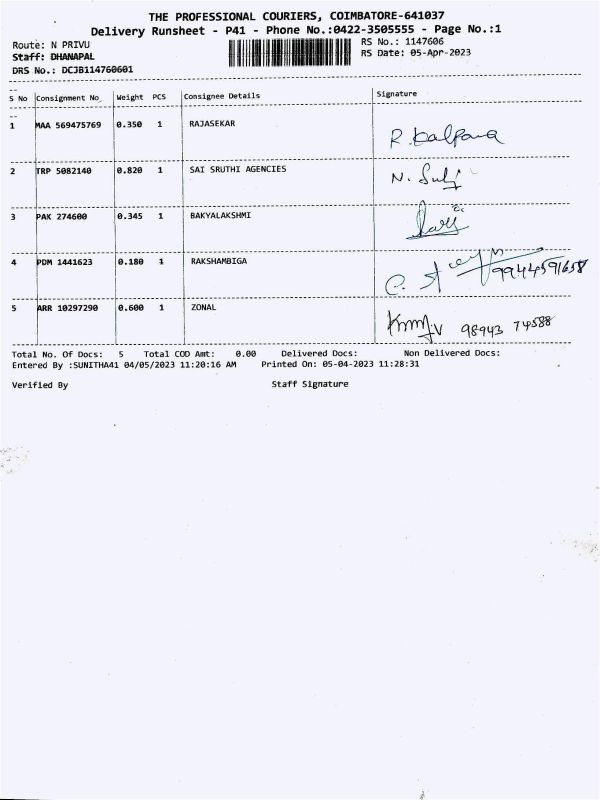 THE PROFESSIONAL COURIERS, COIMBATORE-641037
Delivery Runsheet - P41 - Phone No.:0422-3505555 - Page No.:1
Route: N PRIVU RS No.: 1147606
Staff: DHANAPAL RS Date: 05-Apr-2023
DRS No.: DCJB114760601
S No Consignment No Weight PCS Consignee Details Signature
1 MAA 569475769 0.350 1 RAJASEKAR R. Kalpana
2 TRP 5082140 0.820 1 SAI SRUTHI AGENCIES N.
3 PAK 274600 0.345 1 BAKYALAKSHMI
4 PDM 1441623 0.180 1 RAKSHAMBIGA C. 9944591658
5 ARR 10297290 0.600 1 ZONAL 98943 74588
Total No. Of Docs: 5 Total COD Amt: 0.00 Delivered Docs: Non Delivered Docs:
Entered By :SUNITHA41 04/05/2023 11:20:16 AM Printed On: 05-04-2023 11:28:31
Verified By Staff Signature